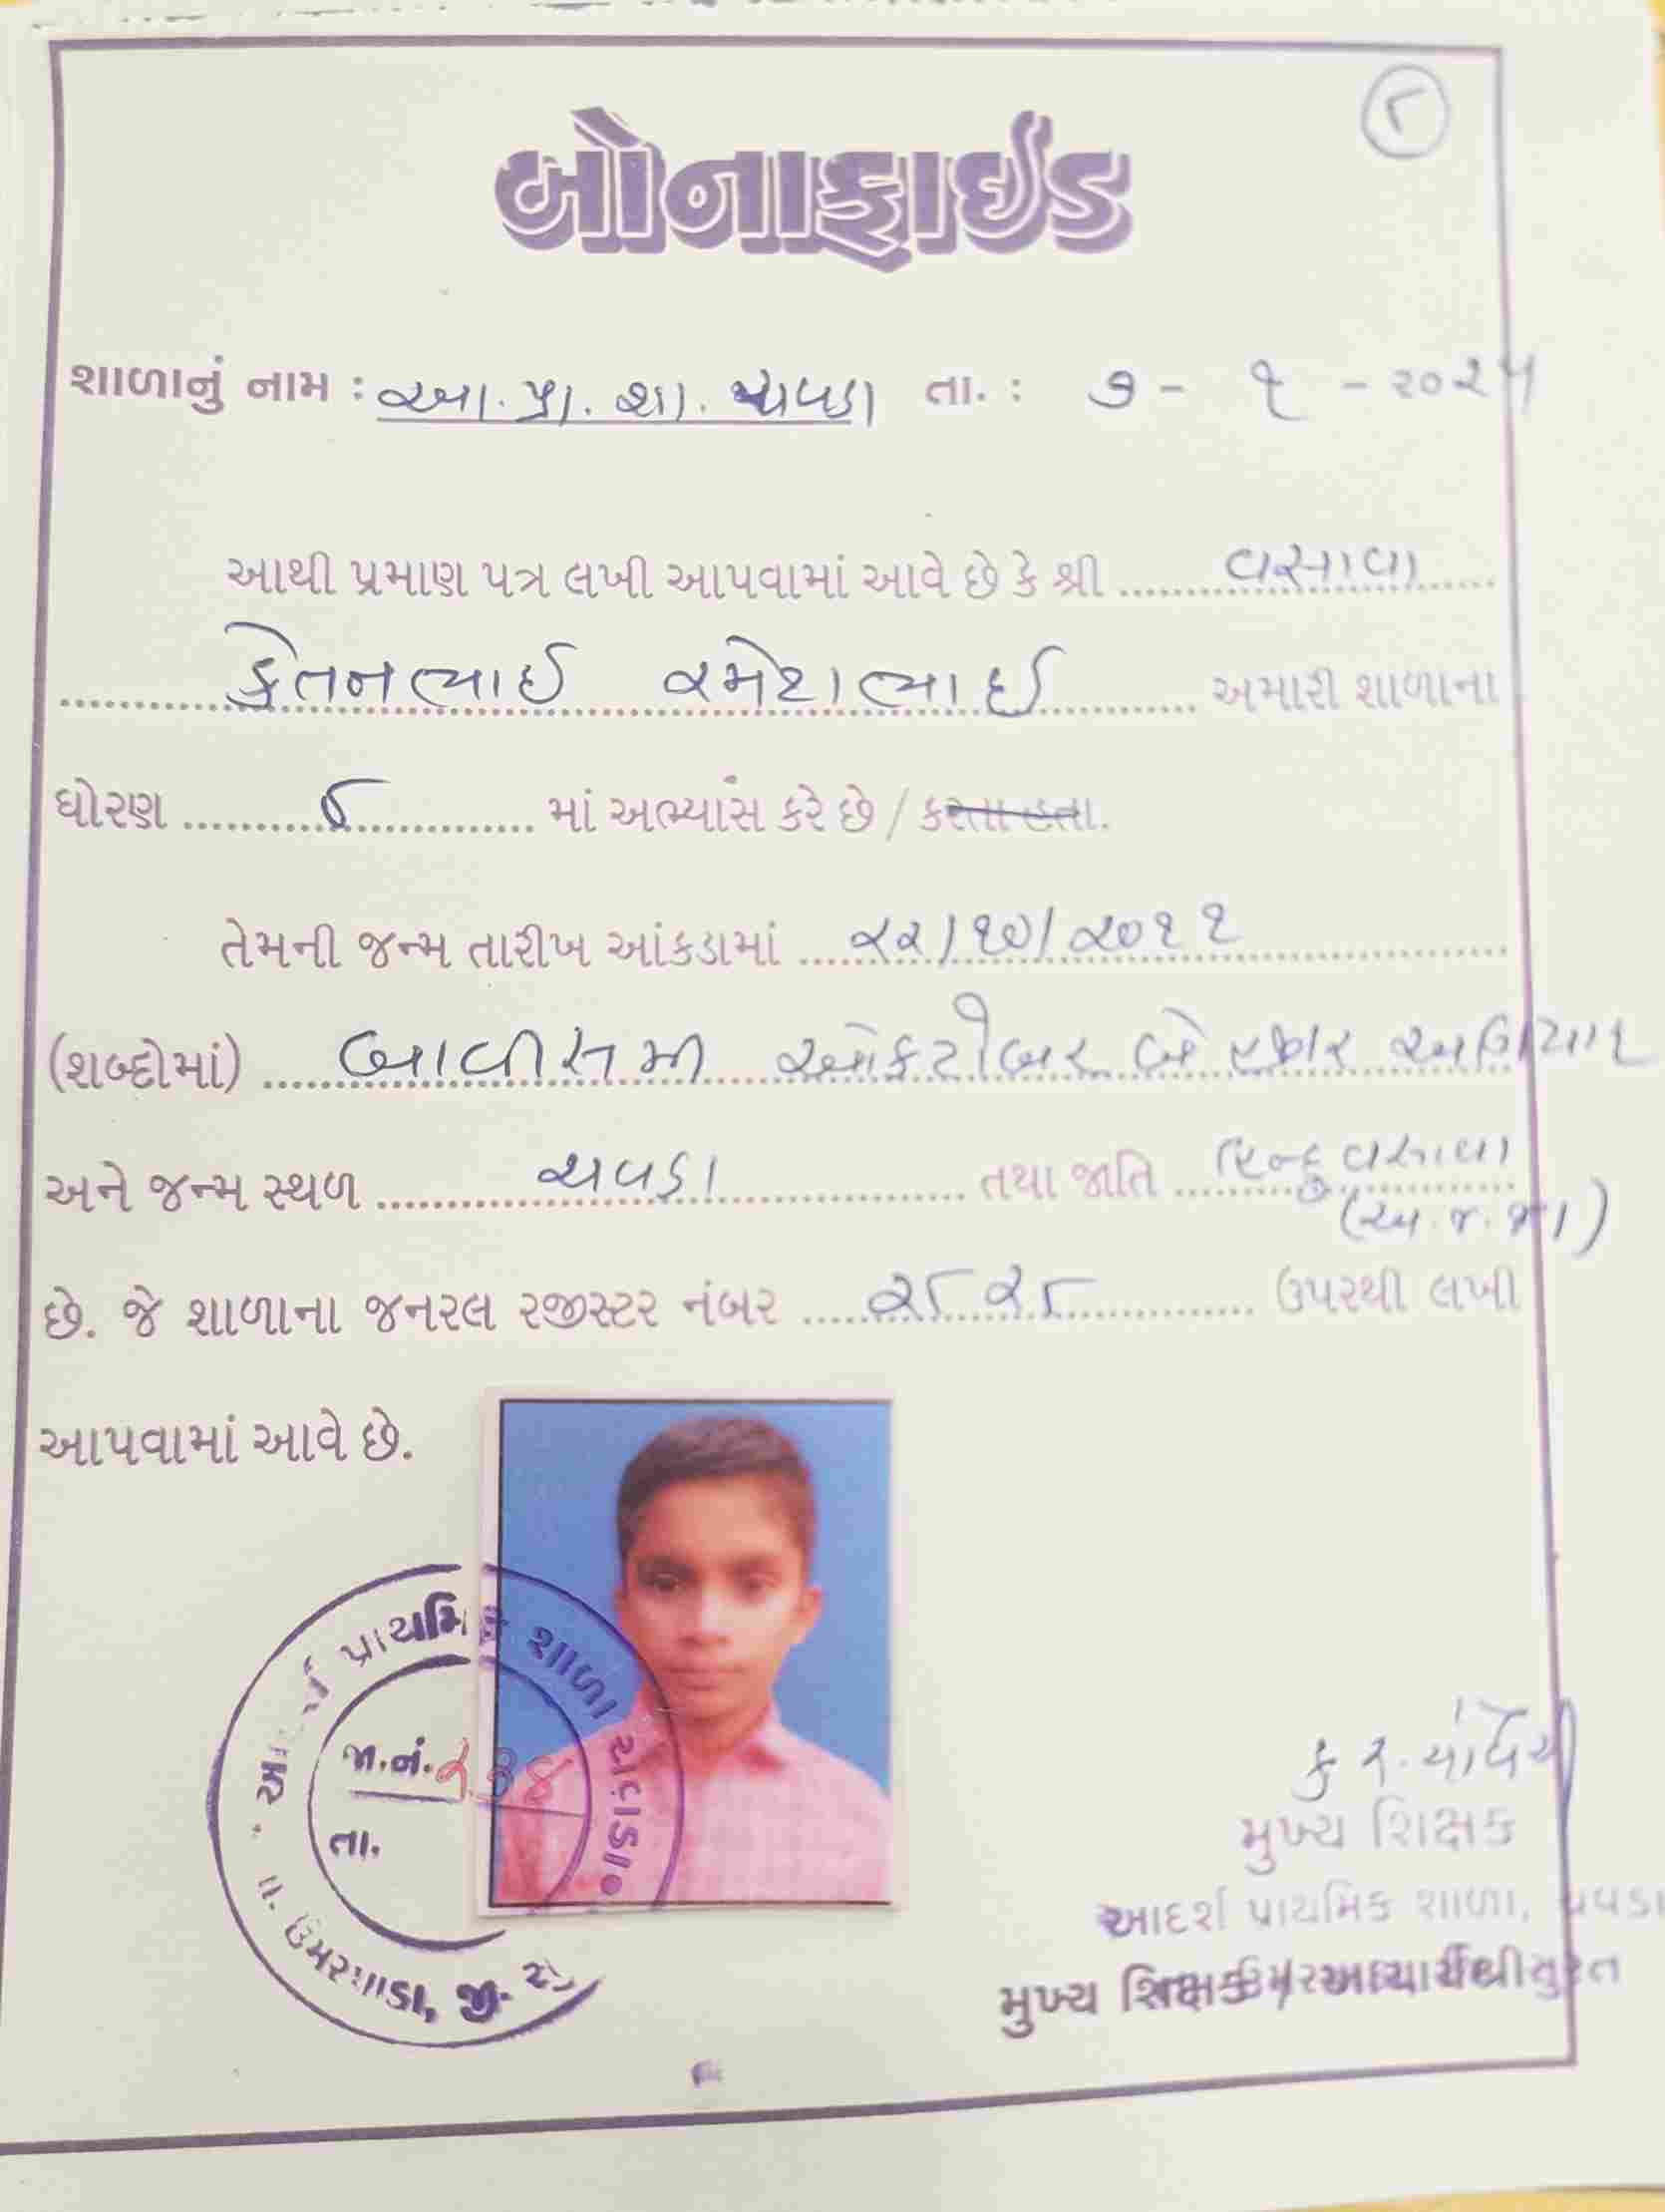 ૮
બોનાફાઈડ
શાળાનું નામ : આ. પ્રા. શા. ચવડા તા. : ૭ - ૧ - ૨૦૨૫
આથી પ્રમાણ પત્ર લખી આપવામાં આવે છે કે શ્રી વસાવા
કેતનભાઈ રમેશભાઈ અમારી શાળાના
ધોરણ ૮ માં અભ્યાસ કરે છે / કરતા હતા.
તેમની જન્મ તારીખ આંકડામાં ૨૨/૧૦/૨૦૧૧
(શબ્દોમાં) બાવીસમી ઓકટોબર બે હજાર અગિયાર
અને જન્મ સ્થળ ચવડા તથા જાતિ હિન્દુ વસાવા
(અ.જ.જા)
છે. જે શાળાના જનરલ રજીસ્ટર નંબર ૨૮૨૮ ઉપરથી લખી
આપવામાં આવે છે.
પ્રાથમિક શાળા
જા.નં. ૨૩૪
તા.
મુખ્ય શિક્ષક
આદર્શ પ્રાથમિક શાળા, ચવડા
મુખ્ય શિક્ષક / આચાર્યશ્રી